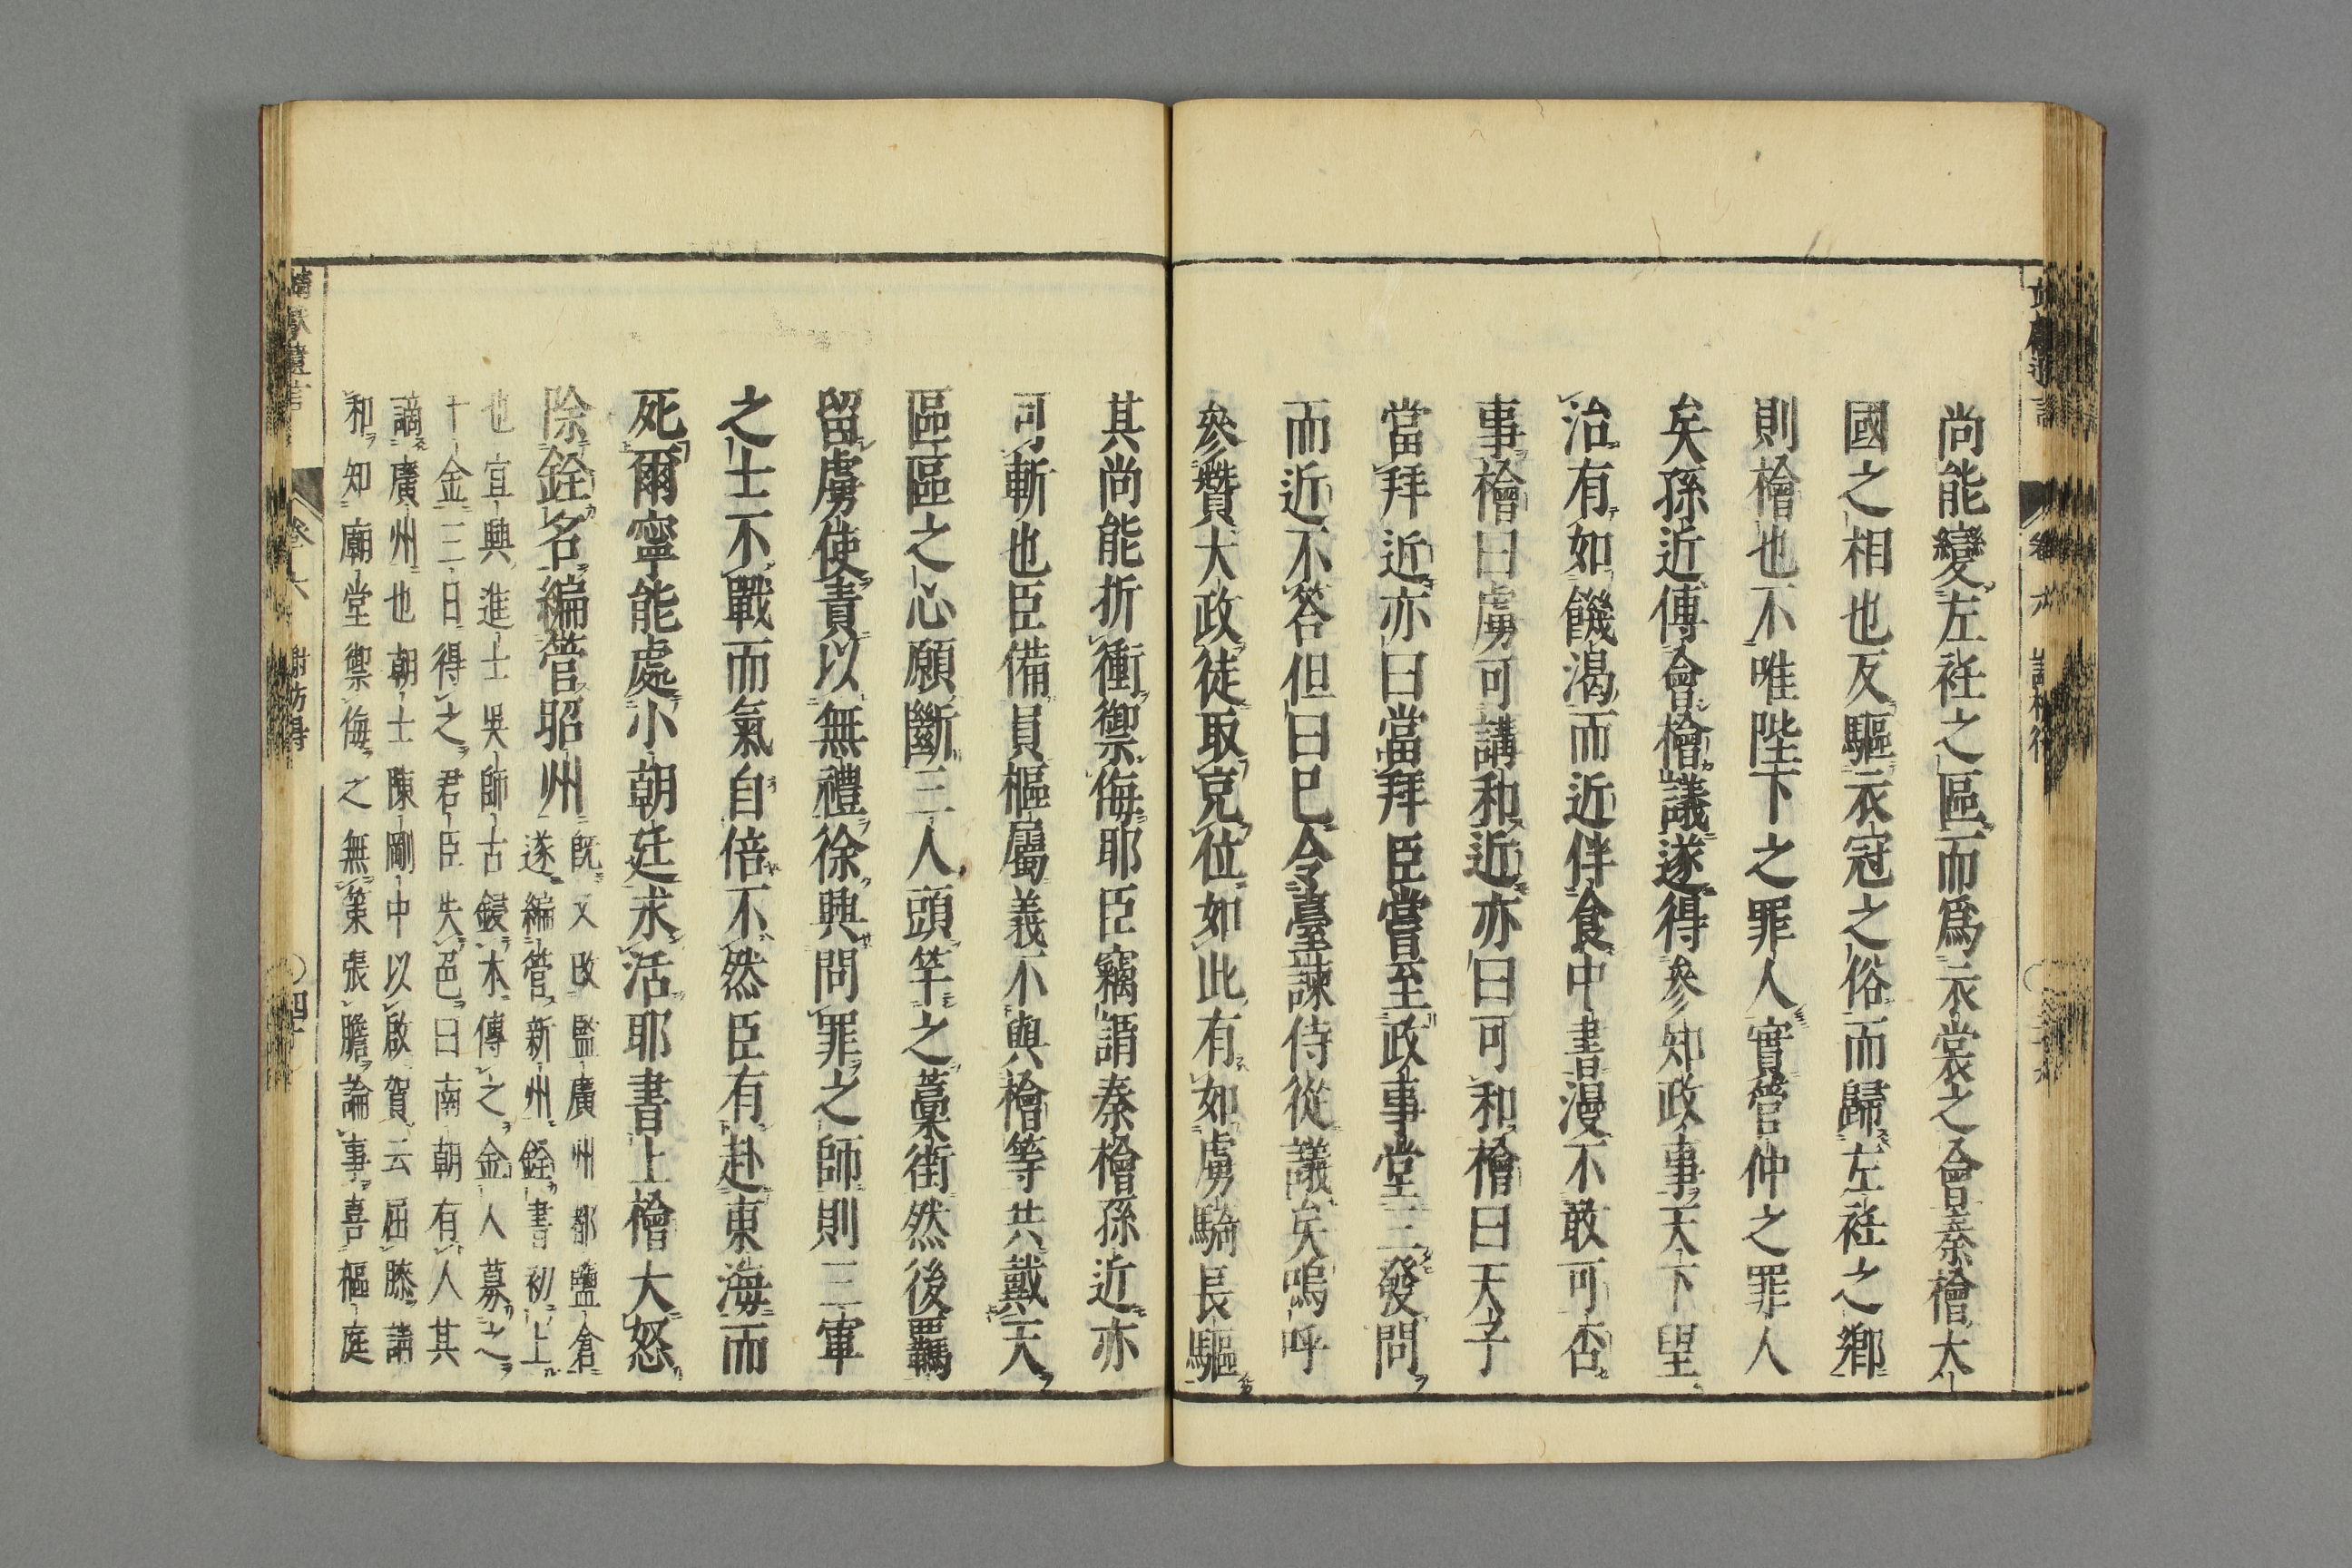 尚能變左衽之區而爲衣裳之會秦檜大
國之相也反驅衣冠之俗而歸左衽之鄕
則檜也不唯陛下之罪人實管仲之罪人
矣孫近傅會檜議遂得參知政事天下望
治有如饑渴而近伴食中書漫不敢可否
事檜曰虜可講和近亦曰可和檜曰天子
當拜近亦曰當拜臣嘗至政事堂三發問
而近不答但曰已令臺諫侍從議矣嗚呼
參贊大政徒取充位如此有如虜騎長驅
其尚能折衝禦侮耶臣竊謂秦檜孫近亦
可斬也臣備員樞屬義不與檜等共戴天
區區之心願斷三人頭竿之藁街然後羈
留虜使責以無禮徐興問罪之師則三軍
之士不戰而氣自倍不然臣有赴東海而
死爾寧能處小朝廷求活耶書上檜大怒
除銓名編管昭州
既又改監廣州都鹽倉
遂編管新州銓書初上
也宜興進士吳師古鋟木傳之金人募之
千金三日得之君臣失色曰南朝有人其
謫廣州也朝士陳剛中以啟賀云屈膝請
和知廟堂禦侮之無策張膽論事喜樞庭
卷六
謝枋得
四十